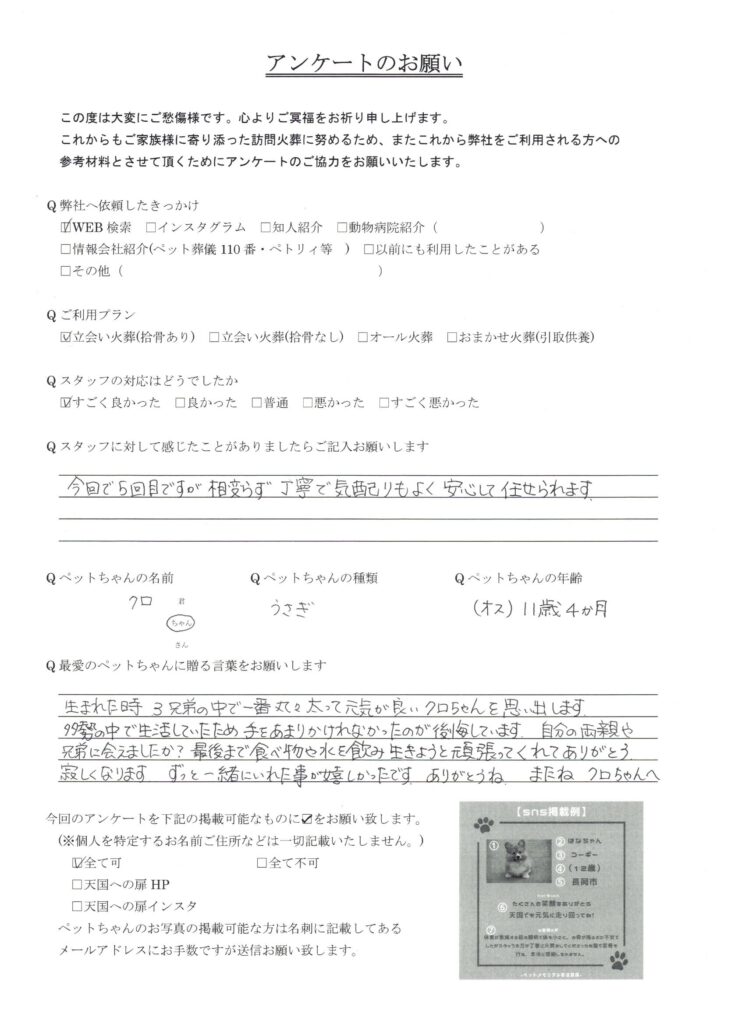 アンケートのお願い
この度は大変にご愁傷様です。心よりご冥福をお祈り申し上げます。
これからもご家族様に寄り添った訪問火葬に努めるため、またこれから弊社をご利用される方への
参考材料とさせて頂くためにアンケートのご協力をお願いいたします。
Q 弊社へ依頼したきっかけ
☑WEB 検索 □インスタグラム □知人紹介 □動物病院紹介（ ）
□情報会社紹介(ペット葬儀 110 番・ペトリィ等 ) □以前にも利用したことがある
□その他（ ）
Q ご利用プラン
☑立会い火葬(拾骨あり) □立会い火葬(拾骨なし) □オール火葬 □おまかせ火葬(引取供養)
Q スタッフの対応はどうでしたか
☑すごく良かった □良かった □普通 □悪かった □すごく悪かった
Q スタッフに対して感じたことがありましたらご記入お願いします
今回で5回目ですが 相変らず 丁寧で気配りもよく 安心して 任せられます
Q ペットちゃんの名前 Q ペットちゃんの種類 Q ペットちゃんの年齢
クロ 君 うさぎ (オス) 11歳 4か月
ちゃん
さん
Q 最愛のペットちゃんに贈る言葉をお願いします
生まれた時 3兄弟の中で一番丸々太って元気が良い クロちゃんを思い出します
多勢の中で生活していたため 手をあまりかけれなかったのが後悔しています 自分の両親や
兄弟に会えましたか? 最後まで食べ物や水を飲み生きようと頑張ってくれてありがとう
寂しくなります ずっと一緒にいれた事が嬉しかったです ありがとうね またね クロちゃんへ
今回のアンケートを下記の掲載可能なものに☑をお願い致します。
(※個人を特定するお名前ご住所などは一切記載いたしません。)
☑全て可 □全て不可
□天国への扉 HP
□天国への扉インスタ
ペットちゃんのお写真の掲載可能な方は名刺に記載してある
メールアドレスにお手数ですが送信お願い致します。
【sns掲載例】
① ② はなちゃん
③ コーギー
④ (12歳)
⑤ 長岡市
⑥ たくさんの笑顔をありがとう
天国でも元気に走り回ってね!
⑦